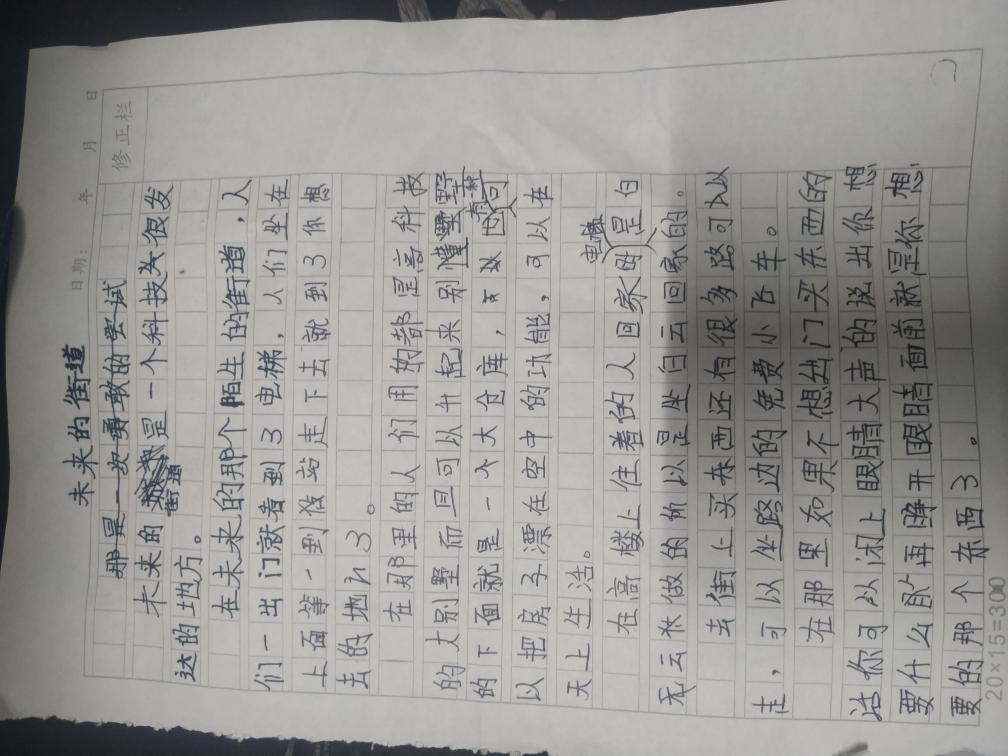 日期： 年 月 日
修正栏
未来的街道
那是一次勇敢的尝试
未来的街道是一个科技头很发
达的地方。
在未来的那个陌生的街道，人
们一出门就看到3电梯，人们坐在
上面等一到 站走下去就到3你想
去的地方3。
在那里的人们用的都是高科技
的大别墅而且可以升起来别墅
的下面就是一个大仓库，可以
以把房子漂在空中的功能，可以在
天上生活。
在高楼上住着的人回家电梯是白
无云朵做的所以是坐白云回家的。
去街上买东西还有很多路可以以
走，可以坐路边的免费小飞车。
在那里如果不想出门买东西的
话你可以闭上眼睛大声的说出你想
要什么 再睁开眼睛面前就是你想
要的那个东西3。
20×15=300